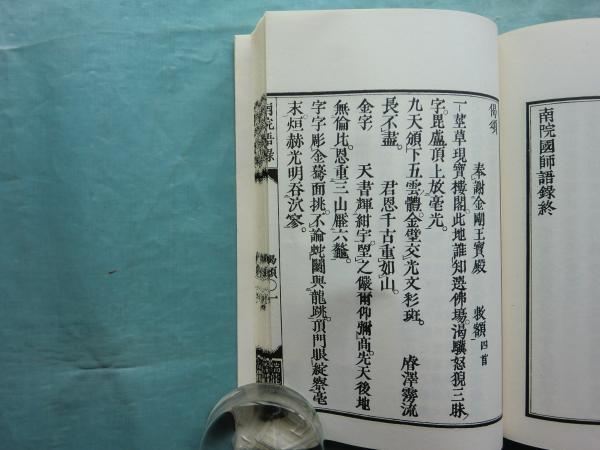 南院國師語錄終
偈頌
奉謝金剛王寶殿 敕額四首
一莖草現寶樓閣。此地誰知選佛場。渴驥怒猊三昧
字。毘盧頂上放毫光。
九天頒下五雲體。金壁交光文彩班。 睿澤霶流
長不盡。 君恩千古重如山。
金字 天書輝紺宇。望之儼爾仰彌高。先天後地
無倫比。恩重三山壓六鼇。
字字彫金驀面挑。不論蛇鬬與龍跳。頂門眼綻察毫
末。烜赫光明吞泬寥。
南院語錄
偈頌 一